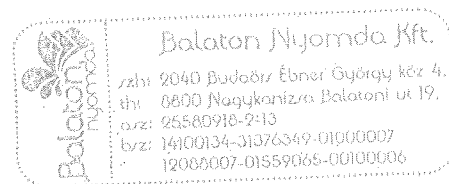 Balaton Nyomda Kft.
szh: 2040 Budaörs Ébner György köz 4.
th: 8800 Nagykanizsa Balatoni út 19.
asz: 25580918-2-13
bsz: 14100134-31376349-01000007
12088007-01559065-00100006
Balaton
nyomda